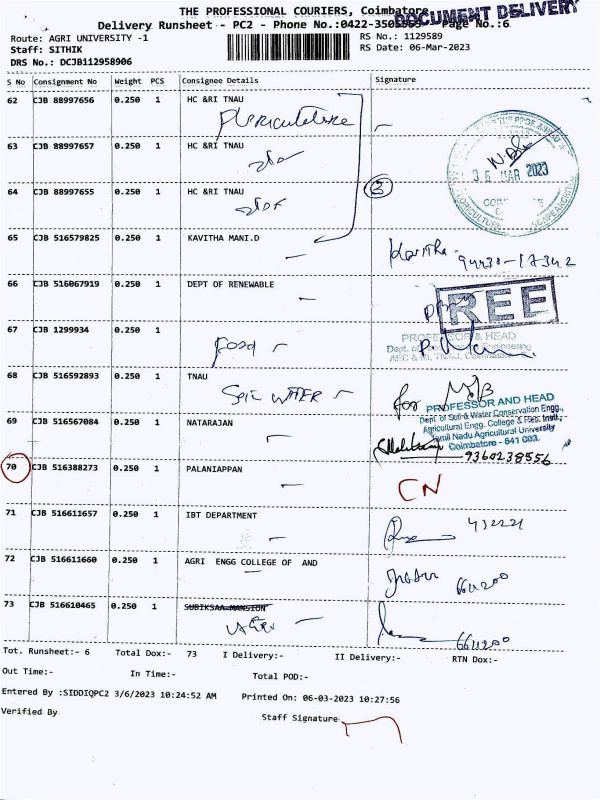 THE PROFESSIONAL COURIERS, Coimbatore
DOCUMENT DELIVERY
Delivery Runsheet - PC2 - Phone No.:0422-3505555 Page No.:6
Route: AGRI UNIVERSITY -1
RS No.: 1129589
Staff: SITHIK
RS Date: 06-Mar-2023
DRS No.: DCJB112958906
S No Consignment No Weight PCS Consignee Details Signature
62 CJB 88997656 0.250 1 HC &RI TNAU
Floriculture
63 CJB 88997657 0.250 1 HC &RI TNAU
06 MAR 2023
64 CJB 88997655 0.250 1 HC &RI TNAU
3
65 CJB 516579825 0.250 1 KAVITHA MANI.D
Kavitha
94430-17342
66 CJB 516067919 0.250 1 DEPT OF RENEWABLE
REE
67 CJB 1299934 0.250 1
Food
PROFESSOR & HEAD
68 CJB 516592893 0.250 1 TNAU
Soil WATER
for
PROFESSOR AND HEAD
Dept. of Soil & Water Conservation Engg.,
Agricultural Engg. College & Res. Instt.,
Tamil Nadu Agricultural University
Coimbatore - 641 003.
69 CJB 516567084 0.250 1 NATARAJAN
9360238556
70 CJB 516388273 0.250 1 PALANIAPPAN
CN
71 CJB 516611657 0.250 1 IBT DEPARTMENT
432221
72 CJB 516611660 0.250 1 AGRI ENGG COLLEGE OF AND
6611200
73 CJB 516610465 0.250 1 SUBIKSAA MANSION
6611200
Tot. Runsheet:- 6 Total Dox:- 73 I Delivery:- II Delivery:- RTN Dox:-
Out Time:- In Time:- Total POD:-
Entered By :SIDDIQPC2 3/6/2023 10:24:52 AM Printed On: 06-03-2023 10:27:56
Verified By
Staff Signature